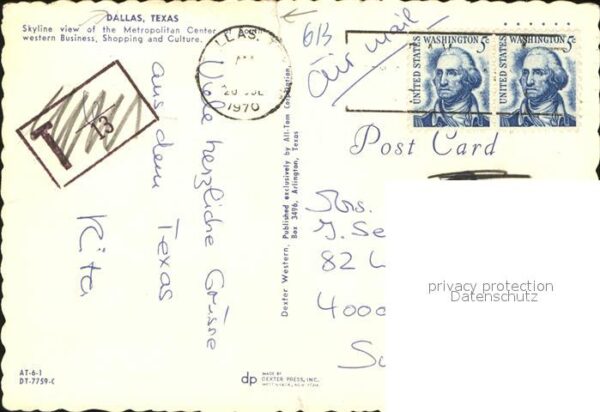 DALLAS, TEXAS
Skyline view of the Metropolitan Center
western Business, Shopping and Culture.
T
13
LLAS, T
AM
1970
613
air mail
UNITED STATES
WASHINGTON 5c
UNITED STATES
WASHINGTON 5c
Viele herzliche Grüsse
aus dem Texas
Rita
Dexter Western, Published exclusively by All-Tom Corporation,
Box 3496, Arlington, Texas
Post Card
Mrs.
J. Se
82
4000
privacy protection
Datenschutz
AT-6-1
DT-7759-C
dp
MADE BY
DEXTER PRESS, INC.
WEST NYACK, NEW YORK